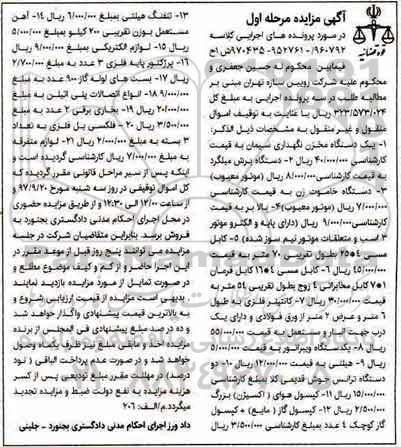 آگهی مزایده مرحله اول
در مورد پرونده های اجرایی کلاسه
۹۶۰۷۹۲/- ۹۵۲۷۶۱ - ۹۷۰۴۳۵ش اح
فیمابین محکوم له حسین جعفری و
محکوم علیه شرکت روبین سازه تهران مبنی بر
مطالبه طلب در سه پرونده اجرایی به مبلغ کل
۳۲۳/۵۷۳/۰۲۴ ریال با عنایت به توقیف اموال
منقول و غیر منقول به مشخصات ذیل الذکر:
۱- یک دستگاه مخزن نگهداری سیمان به قیمت
کارشناسی ۴۰/۰۰۰/۰۰۰ ریال ۲- دستگاه برش میلگرد
به قیمت کارشناسی ۸/۰۰۰/۰۰۰ریال (موتور معیوب)
۳- دستگاه خاموت زن به قیمت کارشناسی
۷/۰۰۰/۰۰۰ ریال (موتور معیوب) ۴- بالا بر به قیمت
کارشناسی ۹/۰۰۰/۰۰۰ ریال (دارای پایه و الکترو موتور
۳ اسب و متعلقات موتور نیم سوز شده) ۵- کابل
مسی ۴*۲۵ بطول تقریبی ۷۰ متر به قیمت
۴۵/۰۰۰/۰۰۰ ریال ۶- کابل مسی ۴*۱۶ کابل فرمان
۷*۱ کابل مخابراتی ۴ زوج بطول تقریبی ۵۴ متر به
قیمت ۳۰/۰۰۰/۰۰۰ ریال ۷- کانتینر فلزی به طول
۶ متر و عرض ۲ متر از ورق فولادی و دارای یک
درب جهت انبار و مستعمل به قیمت ۵۵/۰۰۰/۰۰۰
ریال ۸- یکدستگاه ویبراتور به قیمت ۵/۰۰۰/۰۰۰
ریال ۹- هیلتی به قیمت ۱۲/۰۰۰/۰۰۰ ریال ۱۰- دو
دستگاه ترانس جوش قدیمی کلا بمبلغ کارشناسی
۱۵/۰۰۰/۰۰۰ ریال ۱۱- کپسول هوای (اکسیژن) بزرگ
۲/۵۰۰/۰۰۰ ریال ۱۲- کپسول گاز (مایع) + کپسول
گاز کوچک ۴ عدد بمبلغ کارشناسی ۳/۵۰۰/۰۰۰ ریال
۱۳- تنفنگ هیلتی بمبلغ ۶/۰۰۰/۰۰۰ ریال ۱۴- آهن
مستعمل بوزن تقریبی ۲۰۰ کیلو بمبلغ ۵/۰۰۰/۰۰۰
ریال ۱۵- لوازم الکتریکی بمبلغ ۹/۰۰۰/۰۰۰ ریال
۱۶- پرژکتور پایه فلزی ۳ عدد به مبلغ ۲/۷۰۰/۰۰۰
ریال ۱۷- بست های لوله گاز ۹۰۰ عدد به مبلغ
۹/۰۰۰/۰۰۰ ۱۸- انواع اتصالات پلی اتیلن به مبلغ
۲۰/۰۰۰/۰۰۰ ریال ۱۹- بخاری برقی ۲ عدد به مبلغ
۳/۵۰۰/۰۰۰ ریال ۲۰- فلکسی بل فلزی به تعداد
۳ بسته به مبلغ ۲/۰۰۰/۰۰۰ ریال ۲۱- لوازم متفرقه
به مبلغ ۷/۰۰۰/۰۰۰ ریال کارشناسی گردیده است و
اینکه پس از سیر مراحل قانونی مقرر گردیده که
کل اموال توقیفی در روز سه شنبه مورخ ۹۷/۹/۲۰
از ساعت ۱۲/۰۰ الی ۱۲:۳۰ و از طریق مزایده حضوری
در محل اجرای احکام مدنی دادگستری بجنورد به
فروش برسد. بنابراین متقاضیان شرکت در جلسه
مزایده می توانند پنج روز قبل از موعد مقرر در
این اجرا حاضر و از کم و کیف موضوع مطلع و
در صورت تمایل از مورد مزایده بازدید نمایند
بدیهی است مزایده از قیمت ارزیابی شروع و
به بالاترین قیمت پیشنهادی واگذار خواهد شد
و ده در صدم مبلغ پیشنهادی فی المجلس از برنده
مزایده اخذ و مابقی مبلغ نیز ظرف یکماه وصول
خواهد شد و در صورت عدم پرداخت الباقی (نود
درصد) در مهلت مقرر مبلغ تودیعی پس از کسر
هزینه مزایده به نفع دولت ضبط و مزایده تجدید
میگردد.م/الف: ۲۰۶
داد ورز اجرای احکام مدنی دادگستری بجنورد - جلینی